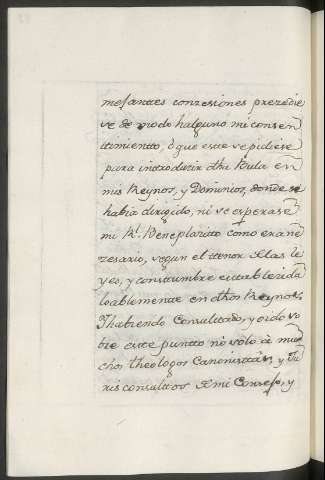 mejantes conzesiones prezedie
se de modo halguno mi consen
timientto, ò que este se pidiese
para introduzir dha Bula en
mis Reynos, y Dominios, donde se
habia dirigido, ni se esperase
mi Rl. Beneplazitto como era ne
zesario, segun el ttenor de las le
yes, y consttumbre esttablezida
loablemente en dhos Reynos.
Y habiendo Consulttado, y oido so
bre estte puntto nò solo à mu
chos theologos Canonisttas, y Ju
risconsulttos de mi Consejo, y